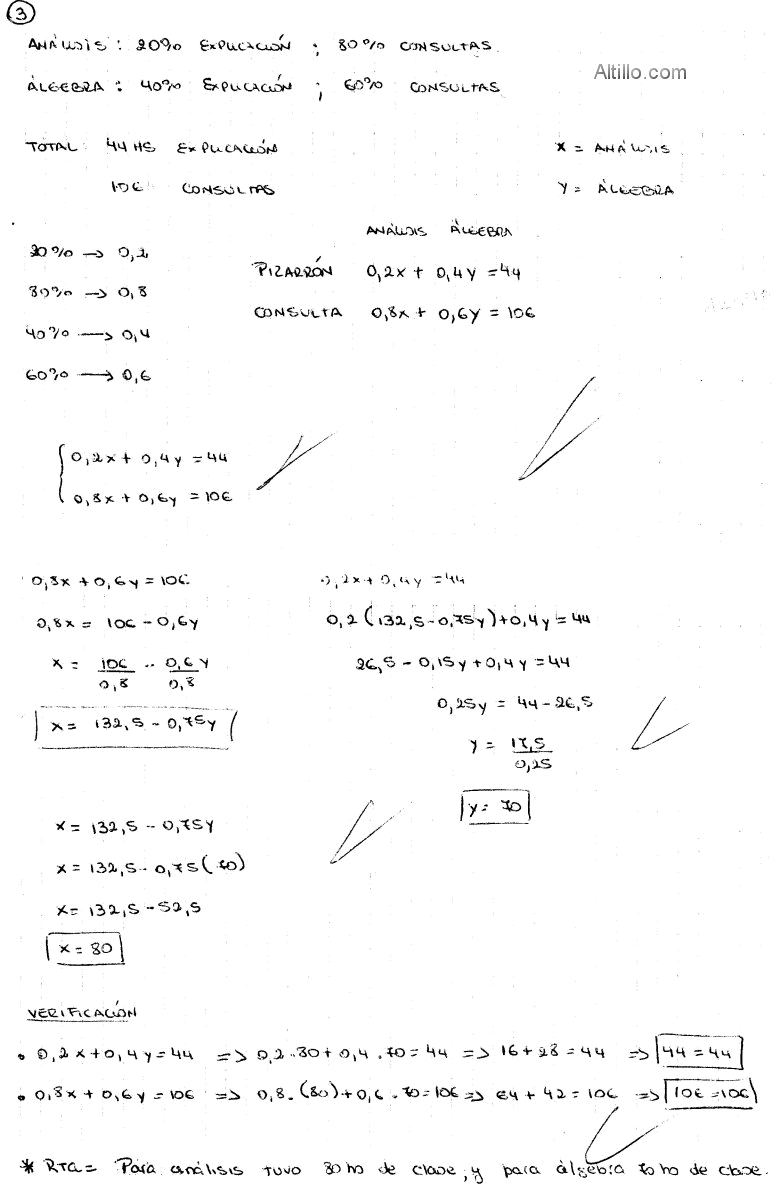 3
ANÁLISIS : 20% EXPLICACIÓN ; 80% CONSULTAS.
Altillo.com
ÁLGEBRA : 40% EXPLICACIÓN ; 60% CONSULTAS
TOTAL: 44 HS EXPLICACIÓN
X = ANÁLISIS
106 CONSULTAS
Y = ÁLGEBRA
ANÁLISIS ÁLGEBRA
20% → 0,2
PIZARRÓN 0,2x + 0,4y = 44
80% → 0,8
CONSULTA 0,8x + 0,6y = 106
40% → 0,4
60% → 0,6
0,2x + 0,4y = 44
0,8x + 0,6y = 106
0,8x + 0,6y = 106
0,2x + 0,4y = 44
0,8x = 106 - 0,6y
0,2(132,5 - 0,75y) + 0,4y = 44
x = 106/0,8 - 0,6y/0,8
26,5 - 0,15y + 0,4y = 44
x = 132,5 - 0,75y
0,25y = 44 - 26,5
y = 17,5/0,25
y = 70
x = 132,5 - 0,75y
x = 132,5 - 0,75(70)
x = 132,5 - 52,5
x = 80
VERIFICACIÓN
• 0,2x + 0,4y = 44 => 0,2 . 80 + 0,4 . 70 = 44 => 16 + 28 = 44 => 44 = 44
• 0,8x + 0,6y = 106 => 0,8 . (80) + 0,6 . 70 = 106 => 64 + 42 = 106 => 106 = 106
* RTA = Para análisis tuvo 80 hs de clase, y para álgebra 70 hs de clase.